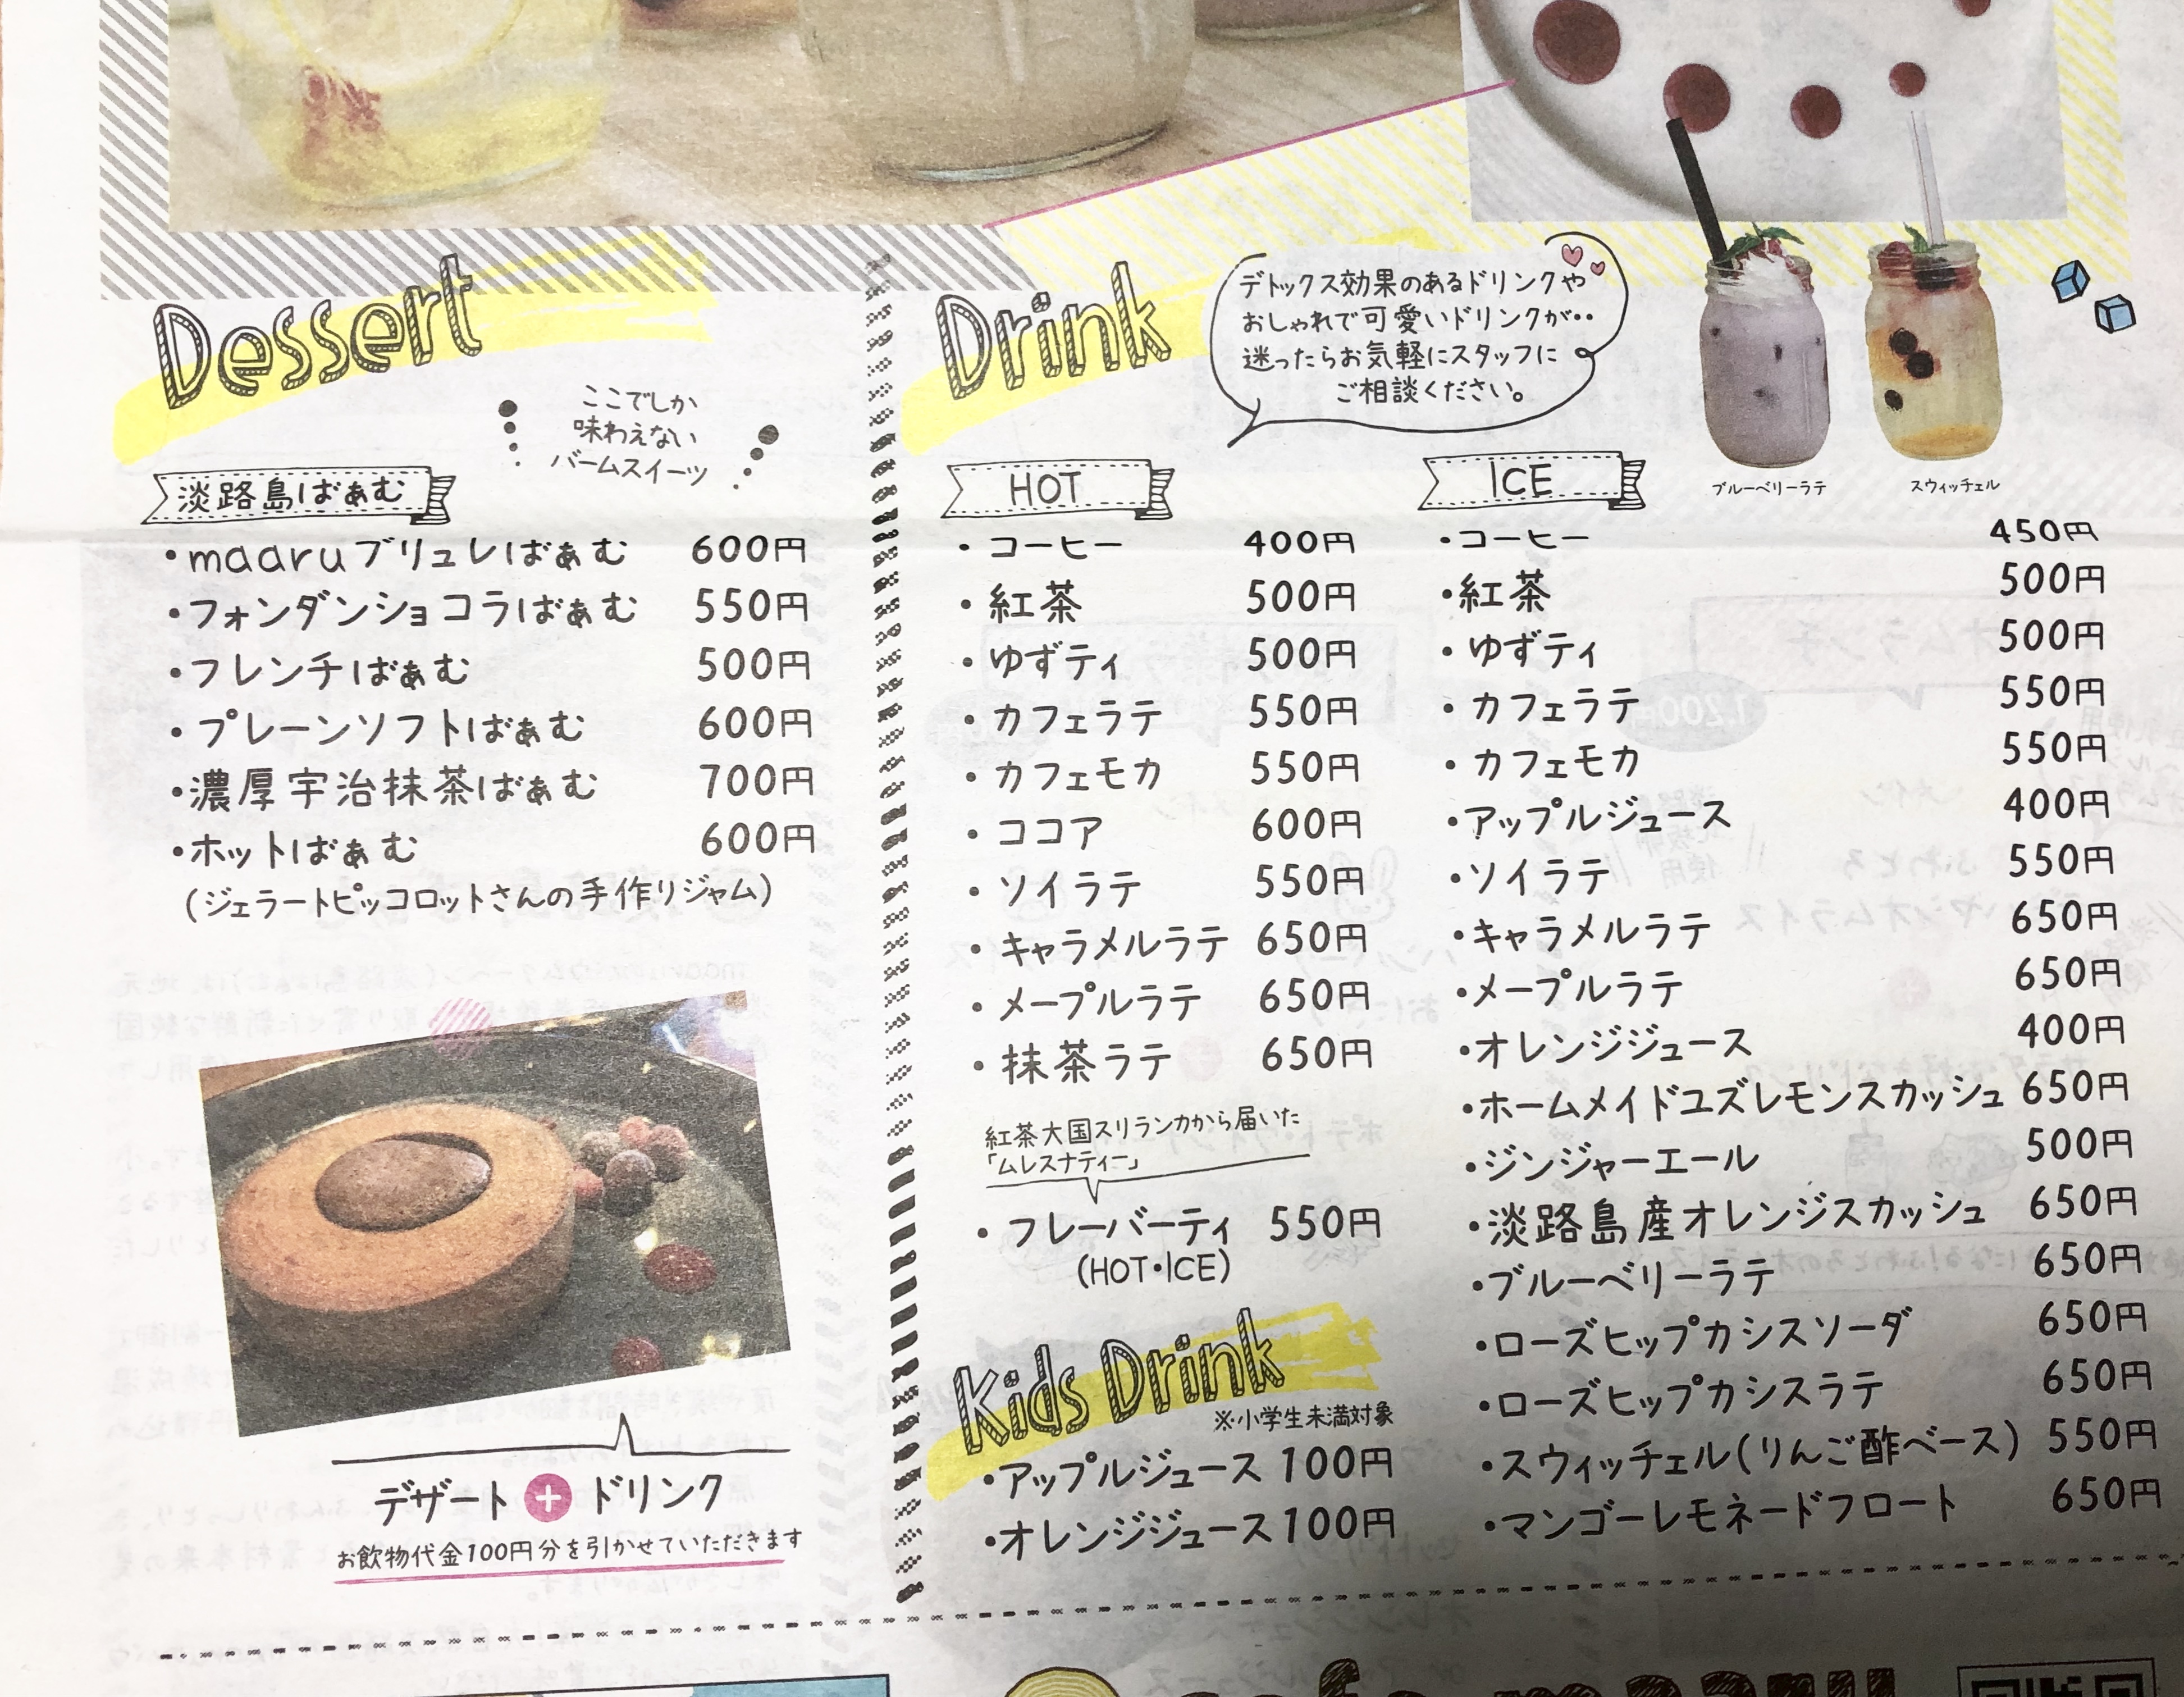 Dessert
ここでしか
味わえない
バームスイーツ
淡路島ばぁむ
・maaruブリュレばぁむ 600円
・フォンダンショコラばぁむ 550円
・フレンチばぁむ 500円
・プレーンソフトばぁむ 600円
・濃厚宇治抹茶ばぁむ 700円
・ホットばぁむ 600円
(ジェラートピッコロットさんの手作りジャム)
デザート + ドリンク
お飲物代金100円分を引かせていただきます
Drink
デトックス効果のあるドリンクや
おしゃれで可愛いドリンクが・・
迷ったらお気軽にスタッフに
ご相談ください。
ブルーベリーラテ
スウィッチェル
HOT
・コーヒー 400円
・紅茶 500円
・ゆずティ 500円
・カフェラテ 550円
・カフェモカ 550円
・ココア 600円
・ソイラテ 550円
・キャラメルラテ 650円
・メープルラテ 650円
・抹茶ラテ 650円
紅茶大国スリランカから届いた
「ムレスナティー」
・フレーバーティ 550円
(HOT・ICE)
Kids Drink
※小学生未満対象
・アップルジュース 100円
・オレンジジュース 100円
ICE
・コーヒー 450円
・紅茶 500円
・ゆずティ 500円
・カフェラテ 550円
・カフェモカ 550円
・アップルジュース 400円
・ソイラテ 550円
・キャラメルラテ 650円
・メープルラテ 650円
・オレンジジュース 400円
・ホームメイドユズレモンスカッシュ 650円
・ジンジャーエール 500円
・淡路島産オレンジスカッシュ 650円
・ブルーベリーラテ 650円
・ローズヒップカシスソーダ 650円
・ローズヒップカシスラテ 650円
・スウィッチェル(りんご酢ベース) 550円
・マンゴーレモネードフロート 650円